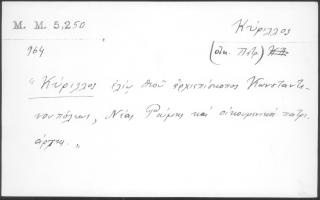 M. M. 5,250
Κύριλλος
(οἰκ. Πατρ.)
964
"Κύριλλος ἐλέῳ Θεοῦ ἀρχιεπίσκοπος Κωνσταντι-
νουπόλεως, Νέας Ῥώμης καὶ οἰκουμενικὸς πατρι-
άρχης."